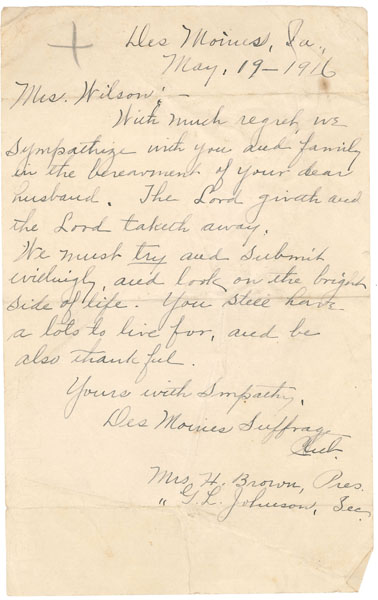 Des Moines, Ia.,
May, 19-1916
Mrs. Wilson:-
With much regret, we
sympathize with you and family
in the bereavment of your dear
husband. The Lord giveth and
the Lord taketh away.
We must try and submit
widingly, and look on the bright
side of life. You still have
a lots to live for, and be
also thankful.
Yours with Smpathy,
Des Moines Suffrag
Club.
Mrs. H. Brown, Pres.
" G. L. Johnson, Sec.